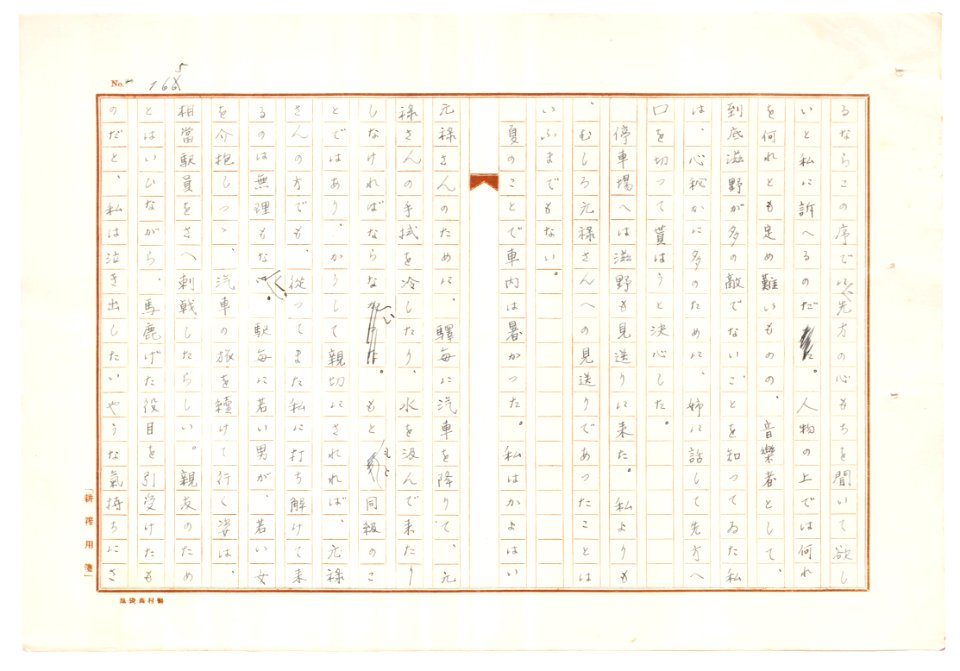 No. 165
るならこの序で以先方の心もちを聞いて欲し
いと私に訴へるのだ。人物の上では何れ
を何れとも定め難いものの、音樂者として、
到底滋野が多の敵でないことを知つてゐた私
は、心秘かに多のために、姉に話して先方へ
口を切つて貰はうと決心した。
停車場へは滋野も見送りに来た。私よりも
、むしろ元禄さんへの見送りであつたことは
いふまでもない。
夏のことで車内は暑かつた。私はかよはい
元禄さんのために、驛每に汽車を降りて、元
禄さんの手拭を冷したり、水を汲んで来たり
しなければならない。もともと同級のこ
とではあり、かうして親切にされれば、元禄
さんの方でも、從つてまた私に打ち解けて来
るのは無理もない。駅每に若い男が、若い女
を介抱しつゝ、汽車の旅を續けて行く姿は、
相當駅員をさへ刺戟したらしい。親友のため
とはいひながら、馬鹿げた役目を引受けたも
のだと、私は泣き出したいやうな氣持ちにさ
「耕筰用箋」